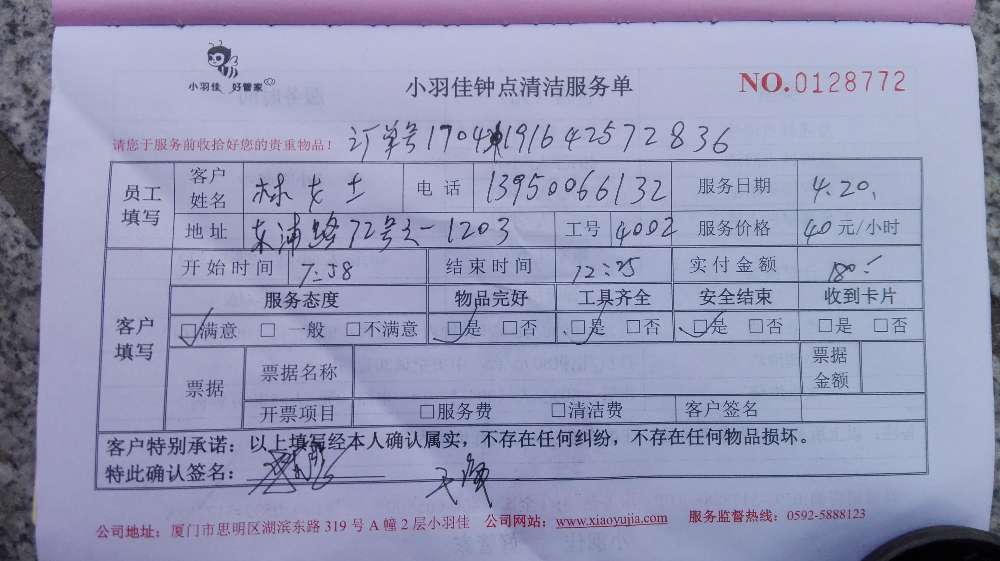 小羽佳 好管家
小羽佳钟点清洁服务单
NO.0128772
请您于服务前收拾好您的贵重物品！ 订单号1704191642572836
员工填写 客户姓名 林女士 电话 13950066132 服务日期 4.20.
地址 东浦路72号之一1203 工号 4002 服务价格 40元/小时
客户填写 开始时间 7:58 结束时间 12:25 实付金额 180.-
服务态度 物品完好 工具齐全 安全结束 收到卡片
☑满意 □一般 □不满意 ☑是 □否 ☑是 □否 ☑是 □否 □是 □否
票据 票据名称 票据金额
开票项目 □服务费 □清洁费 客户签名
客户特别承诺：以上填写经本人确认属实，不存在任何纠纷，不存在任何物品损坏。
特此确认签名：
公司地址：厦门市思明区湖滨东路319号A幢2层小羽佳 公司网站：www.xiaoyujia.com 服务监督热线：0592-5888123